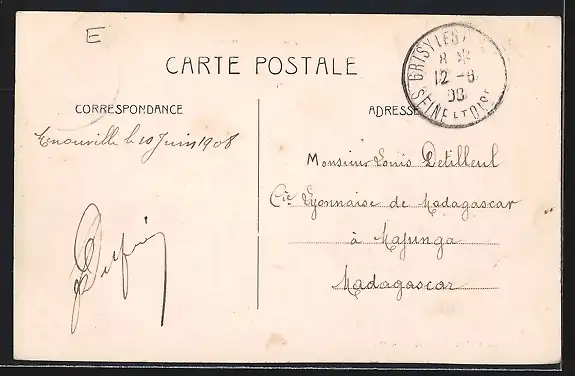 E
CARTE POSTALE
GRISY LES
8 *
12 -6
08
SEINE ET OISE
CORRESPONDANCE
ADRESSE
Enouville le 10 Juin 1908
Monsieur Louis Detilleul
Cie Lyonnaise de Madagascar
à Majunga
Madagascar